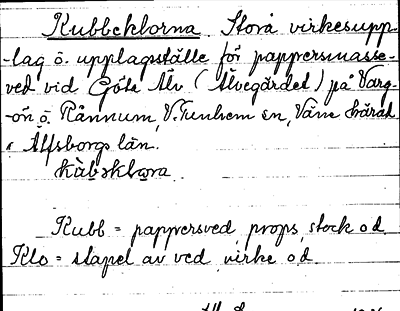 Kubbeklorna. Stora virkesupp-
-lag ö. upplagsställe för pappersmasse-
ved vid Göta Älv (Älvegärdet) på Varg-
-ön ö. Rånnum, V. Tunhem sn, Väne härad
i Älfsborgs län.
kàbəklωra
Kubb = pappersved, props, stock o d.
Klo = stapel av ved, virke o d.